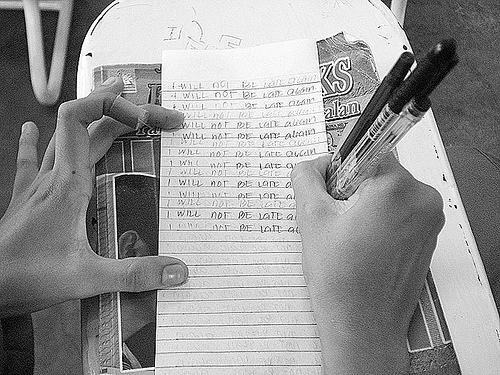 I WILL NOT BE LATE AGAIN
I WILL NOT BE LATE AGAIN
I WILL NOT BE LATE AGAIN
WILL NOT BE LATE AGAIN
WILL NOT BE LATE AGAIN
WILL NOT BE LATE AGAIN
WILL NOT BE LATE AGAIN
WILL NOT BE LATE AGAIN
I WILL NOT BE LATE
I WILL NOT BE LATE
I WILL NOT BE LATE
I WILL NOT BE LATE
I WILL NOT BE LATE
I WILL NOT BE LATE
I WILL NOT BE LATE
KS
alan